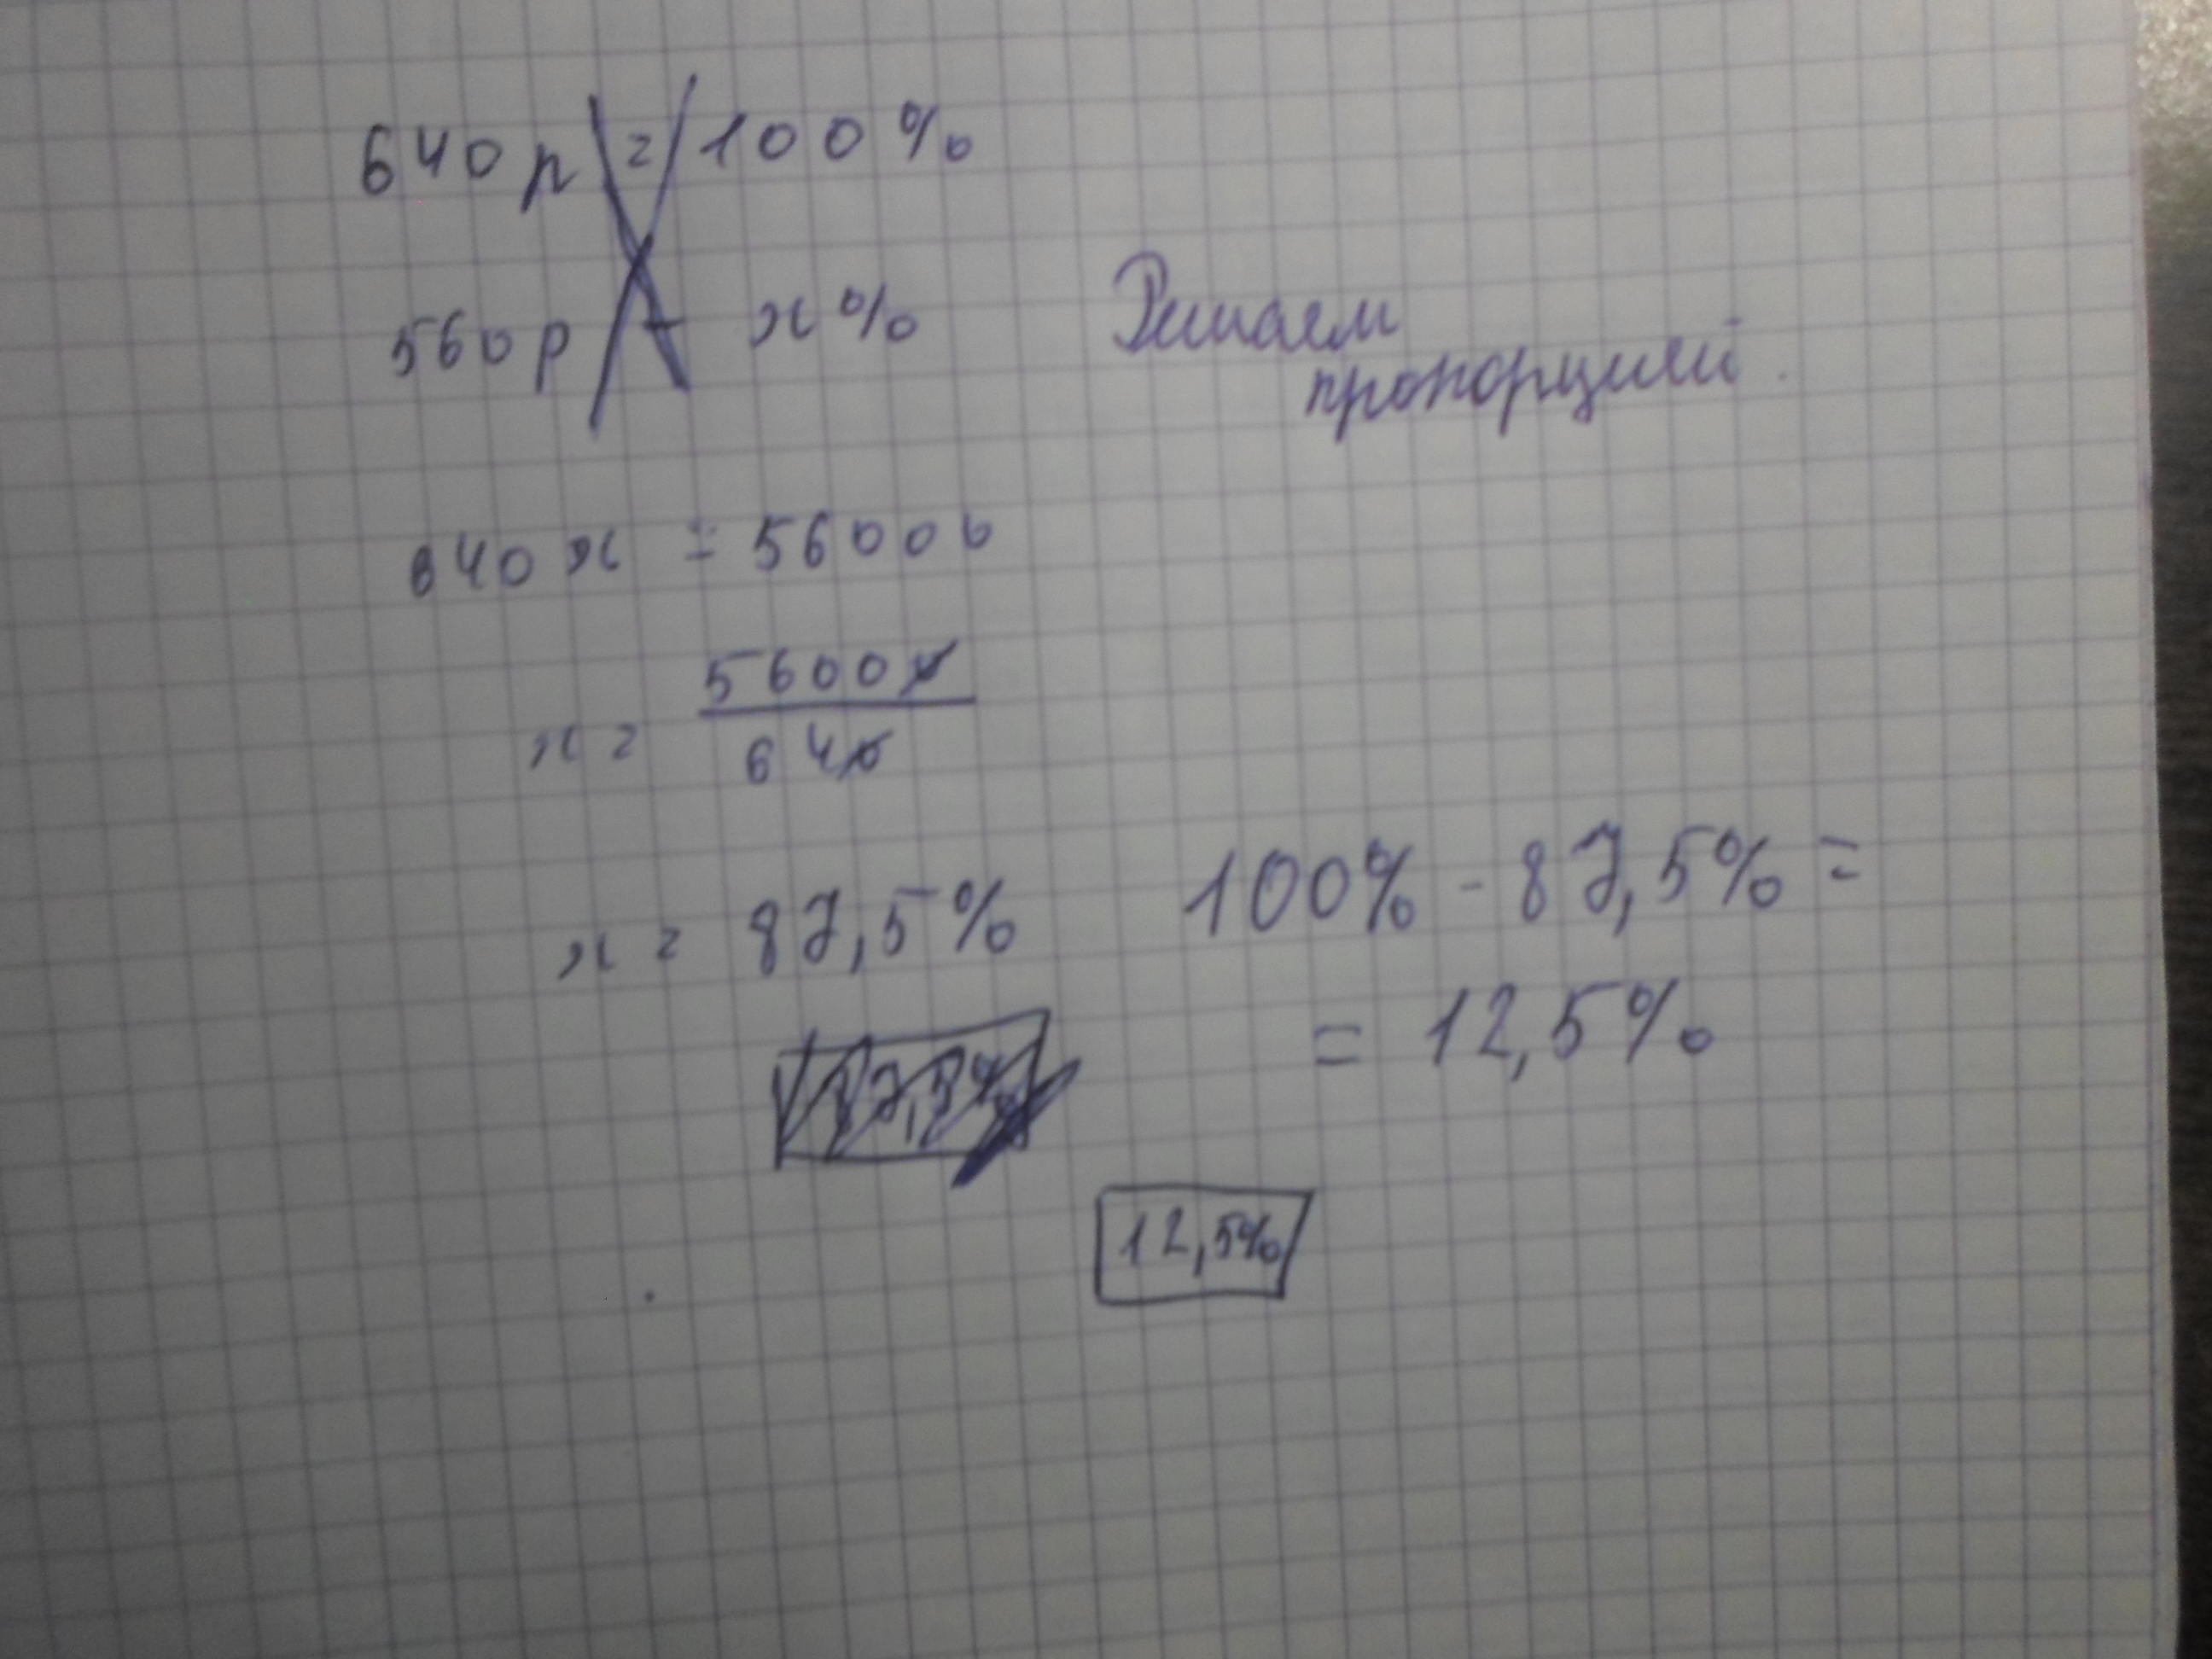 640р = 100%
560р - x%
Решаем
пропорцией.
640x = 56000
x = 56000/640
x = 87,5%
100% - 87,5% =
= 12,5%
87,5%
12,5%